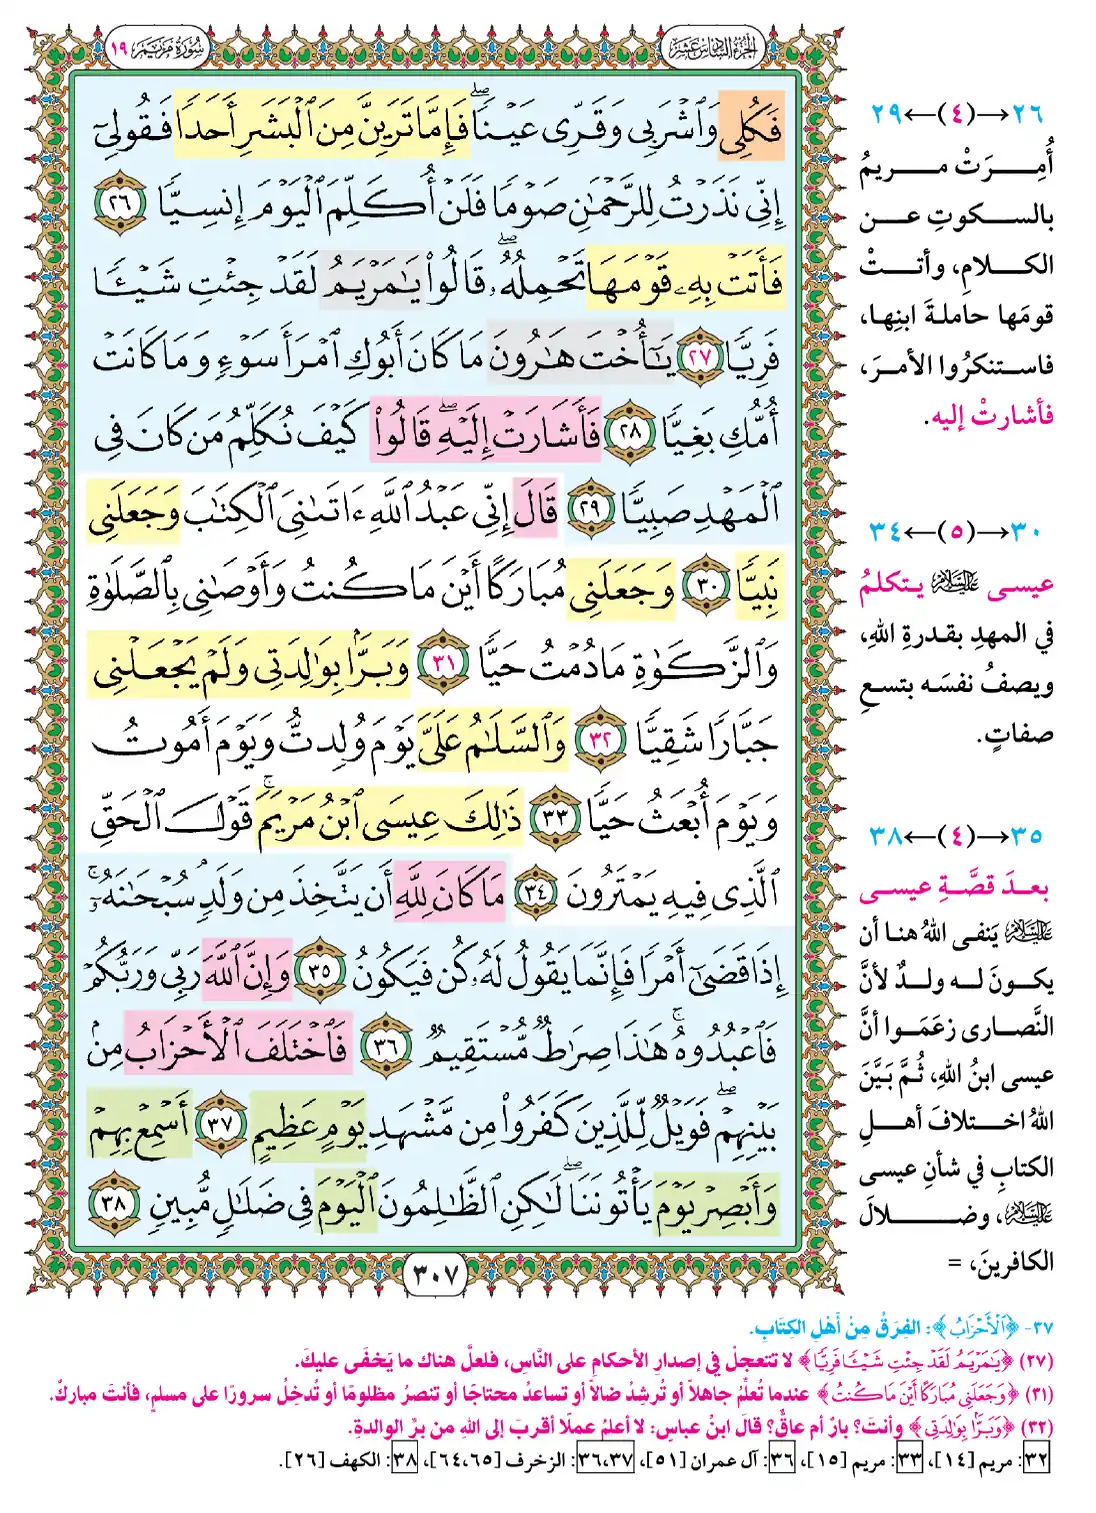 الجزء السادس عشر
سورة مريم ١٩
فَكُلِى وَٱشْرَبِى وَقَرِّى عَيْنًاۖ فَإِمَّا تَرَيِنَّ مِنَ ٱلْبَشَرِ أَحَدًا فَقُولِىٓ
إِنِّى نَذَرْتُ لِلرَّحْمَٰنِ صَوْمًا فَلَنْ أُكَلِّمَ ٱلْيَوْمَ إِنسِيًّا ٢٦
فَأَتَتْ بِهِۦ قَوْمَهَا تَحْمِلُهُۥۖ قَالُوا۟ يَٰمَرْيَمُ لَقَدْ جِئْتِ شَيْـًٔا
فَرِيًّا ٢٧ يَٰٓأُخْتَ هَٰرُونَ مَا كَانَ أَبُوكِ ٱمْرَأَ سَوْءٍ وَمَا كَانَتْ
أُمُّكِ بَغِيًّا ٢٨ فَأَشَارَتْ إِلَيْهِۖ قَالُوا۟ كَيْفَ نُكَلِّمُ مَن كَانَ فِى
ٱلْمَهْدِ صَبِيًّا ٢٩ قَالَ إِنِّى عَبْدُ ٱللَّهِ ءَاتَىٰنِىَ ٱلْكِتَٰبَ وَجَعَلَنِى
نَبِيًّا ٣٠ وَجَعَلَنِى مُبَارَكًا أَيْنَ مَا كُنتُ وَأَوْصَٰنِى بِٱلصَّلَوٰةِ
وَٱلزَّكَوٰةِ مَا دُمْتُ حَيًّا ٣١ وَبَرًّۢا بِوَٰلِدَتِى وَلَمْ يَجْعَلْنِى
جَبَّارًا شَقِيًّا ٣٢ وَٱلسَّلَٰمُ عَلَىَّ يَوْمَ وُلِدتُّ وَيَوْمَ أَمُوتُ
وَيَوْمَ أُبْعَثُ حَيًّا ٣٣ ذَٰلِكَ عِيسَى ٱبْنُ مَرْيَمَۚ قَوْلَ ٱلْحَقِّ
ٱلَّذِى فِيهِ يَمْتَرُونَ ٣٤ مَا كَانَ لِلَّهِ أَن يَتَّخِذَ مِن وَلَدٍۖ سُبْحَٰنَهُۥٓۚ
إِذَا قَضَىٰٓ أَمْرًا فَإِنَّمَا يَقُولُ لَهُۥ كُن فَيَكُونُ ٣٥ وَإِنَّ ٱللَّهَ رَبِّى وَرَبُّكُمْ
فَٱعْبُدُوهُۚ هَٰذَا صِرَٰطٌ مُّسْتَقِيمٌ ٣٦ فَٱخْتَلَفَ ٱلْأَحْزَابُ مِنۢ
بَيْنِهِمْۖ فَوَيْلٌ لِّلَّذِينَ كَفَرُوا۟ مِن مَّشْهَدِ يَوْمٍ عَظِيمٍ ٣٧ أَسْمِعْ بِهِمْ
وَأَبْصِرْ يَوْمَ يَأْتُونَنَاۖ لَٰكِنِ ٱلظَّٰلِمُونَ ٱلْيَوْمَ فِى ضَلَٰلٍ مُّبِينٍ ٣٨
٣٠٧
٢٦→(٤)←٢٩
أُمِرَتْ مريمُ
بالسكوتِ عن
الكلامِ، وأتتْ
قومَها حاملةَ ابنِها،
فاستنكرُوا الأمرَ،
فأشارتْ إليه.
٣٠→(٥)←٣٤
عيسى عليه السلام يتكلمُ
في المهدِ بقدرةِ اللهِ،
ويصفُ نفسَه بتسعِ
صفاتٍ.
٣٥→(٤)←٣٨
بعدَ قصَّةِ عيسى
عليه السلام يَنفي اللهُ هنا أن
يكونَ له ولدٌ لأنَّ
النَّصارى زعَمَوا أنَّ
عيسى ابنُ اللهِ، ثُمَّ بَيَّنَ
اللهُ اختلافَ أهلِ
الكتابِ في شأنِ عيسى
عليه السلام، وضلالَ
الكافرينَ، =
٣٧- ﴿ٱلْأَحْزَابُ﴾: الفِرَقُ مِنْ أَهْلِ الكِتَابِ.
(٢٧) ﴿يَٰمَرْيَمُ لَقَدْ جِئْتِ شَيْـًٔا فَرِيًّا﴾ لا تتعجلْ في إصدارِ الأحكامِ على النَّاسِ، فلعلَّ هناك ما يَخْفَى عليكَ.
(٣١) ﴿وَجَعَلَنِى مُبَارَكًا أَيْنَ مَا كُنتُ﴾ عندما تُعلِّمُ جاهلاً أو تُرشِدُ ضالاً أو تساعدُ محتاجًا أو تنصرُ مظلومًا أو تُدخِلُ سرورًا على مسلمٍ، فأنتَ مباركٌ.
(٣٢) ﴿وَبَرًّۢا بِوَٰلِدَتِى﴾ وأنتَ؟ بارٌ أم عاقٌّ؟ قالَ ابنُ عباسٍ: لا أعلمُ عملًا أقربَ إلى اللهِ من برِّ الوالدةِ.
٣٢: مريم [١٤]، ٣٣: مريم [١٥]، ٣٦: آل عمران [٥١]، ٣٦،٣٧: الزخرف [٦٤،٦٥]، ٣٨: الكهف [٢٦].